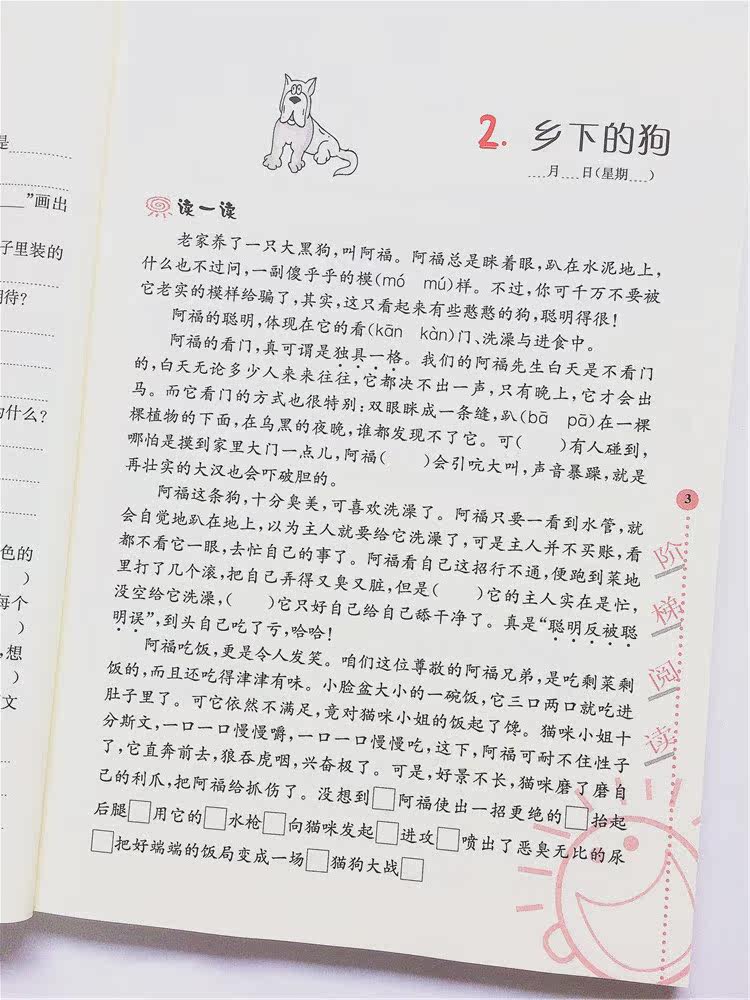 是
”画出
子里装的
期待?
为什么?
色的
)
每个
)
,想
)
文
2. 乡下的狗
月 日(星期 )
读一读
老家养了一只大黑狗,叫阿福。阿福总是眯着眼,趴在水泥地上,
什么也不过问,一副傻乎乎的模(mó mú)样。不过,你可千万不要被
它老实的模样给骗了,其实,这只看起来有些憨憨的狗,聪明得很!
阿福的聪明,体现在它的看(kān kàn)门、洗澡与进食中。
阿福的看门,真可谓是独具一格。我们的阿福先生白天是不看门
的,白天无论多少人来来往往,它都决不出一声,只有晚上,它才会出
马。而它看门的方式也很特别:双眼眯成一条缝,趴(bā pā)在一棵
棵植物的下面,在乌黑的夜晚,谁都发现不了它。可( )有人碰到,
哪怕是摸到家里大门一点儿,阿福( )会引吭大叫,声音暴躁,就是
再壮实的大汉也会吓破胆的。
阿福这条狗,十分臭美,可喜欢洗澡了。阿福只要一看到水管,就
会自觉地趴在地上,以为主人就要给它洗澡了,可是主人并不买账,看
都不看它一眼,去忙自己的事了。阿福看自己这招行不通,便跑到菜地
里打了几个滚,把自己弄得又臭又脏,但是( )它的主人实在是忙,
没空给它洗澡,( )它只好自己给自己舔干净了。真是“聪明反被聪
明误”,到头自己吃了亏,哈哈!
阿福吃饭,更是令人发笑。咱们这位尊敬的阿福兄弟,是吃剩菜剩
饭的,而且还吃得津津有味。小脸盆大小的一碗饭,它三口两口就吃进
肚子里了。可它依然不满足,竟对猫咪小姐的饭起了馋。猫咪小姐十
分斯文,一口一口慢慢嚼,一口一口慢慢吃,这下,阿福可耐不住性子
了,它直奔前去,狼吞虎咽,兴奋极了。可是,好景不长,猫咪磨了磨自
己的利爪,把阿福给抓伤了。没想到□阿福使出一招更绝的□抬起
后腿□用它的□水枪□向猫咪发起□进攻□喷出了恶臭无比的尿
□把好端端的饭局变成一场□猫狗大战□
3
阶梯阅读